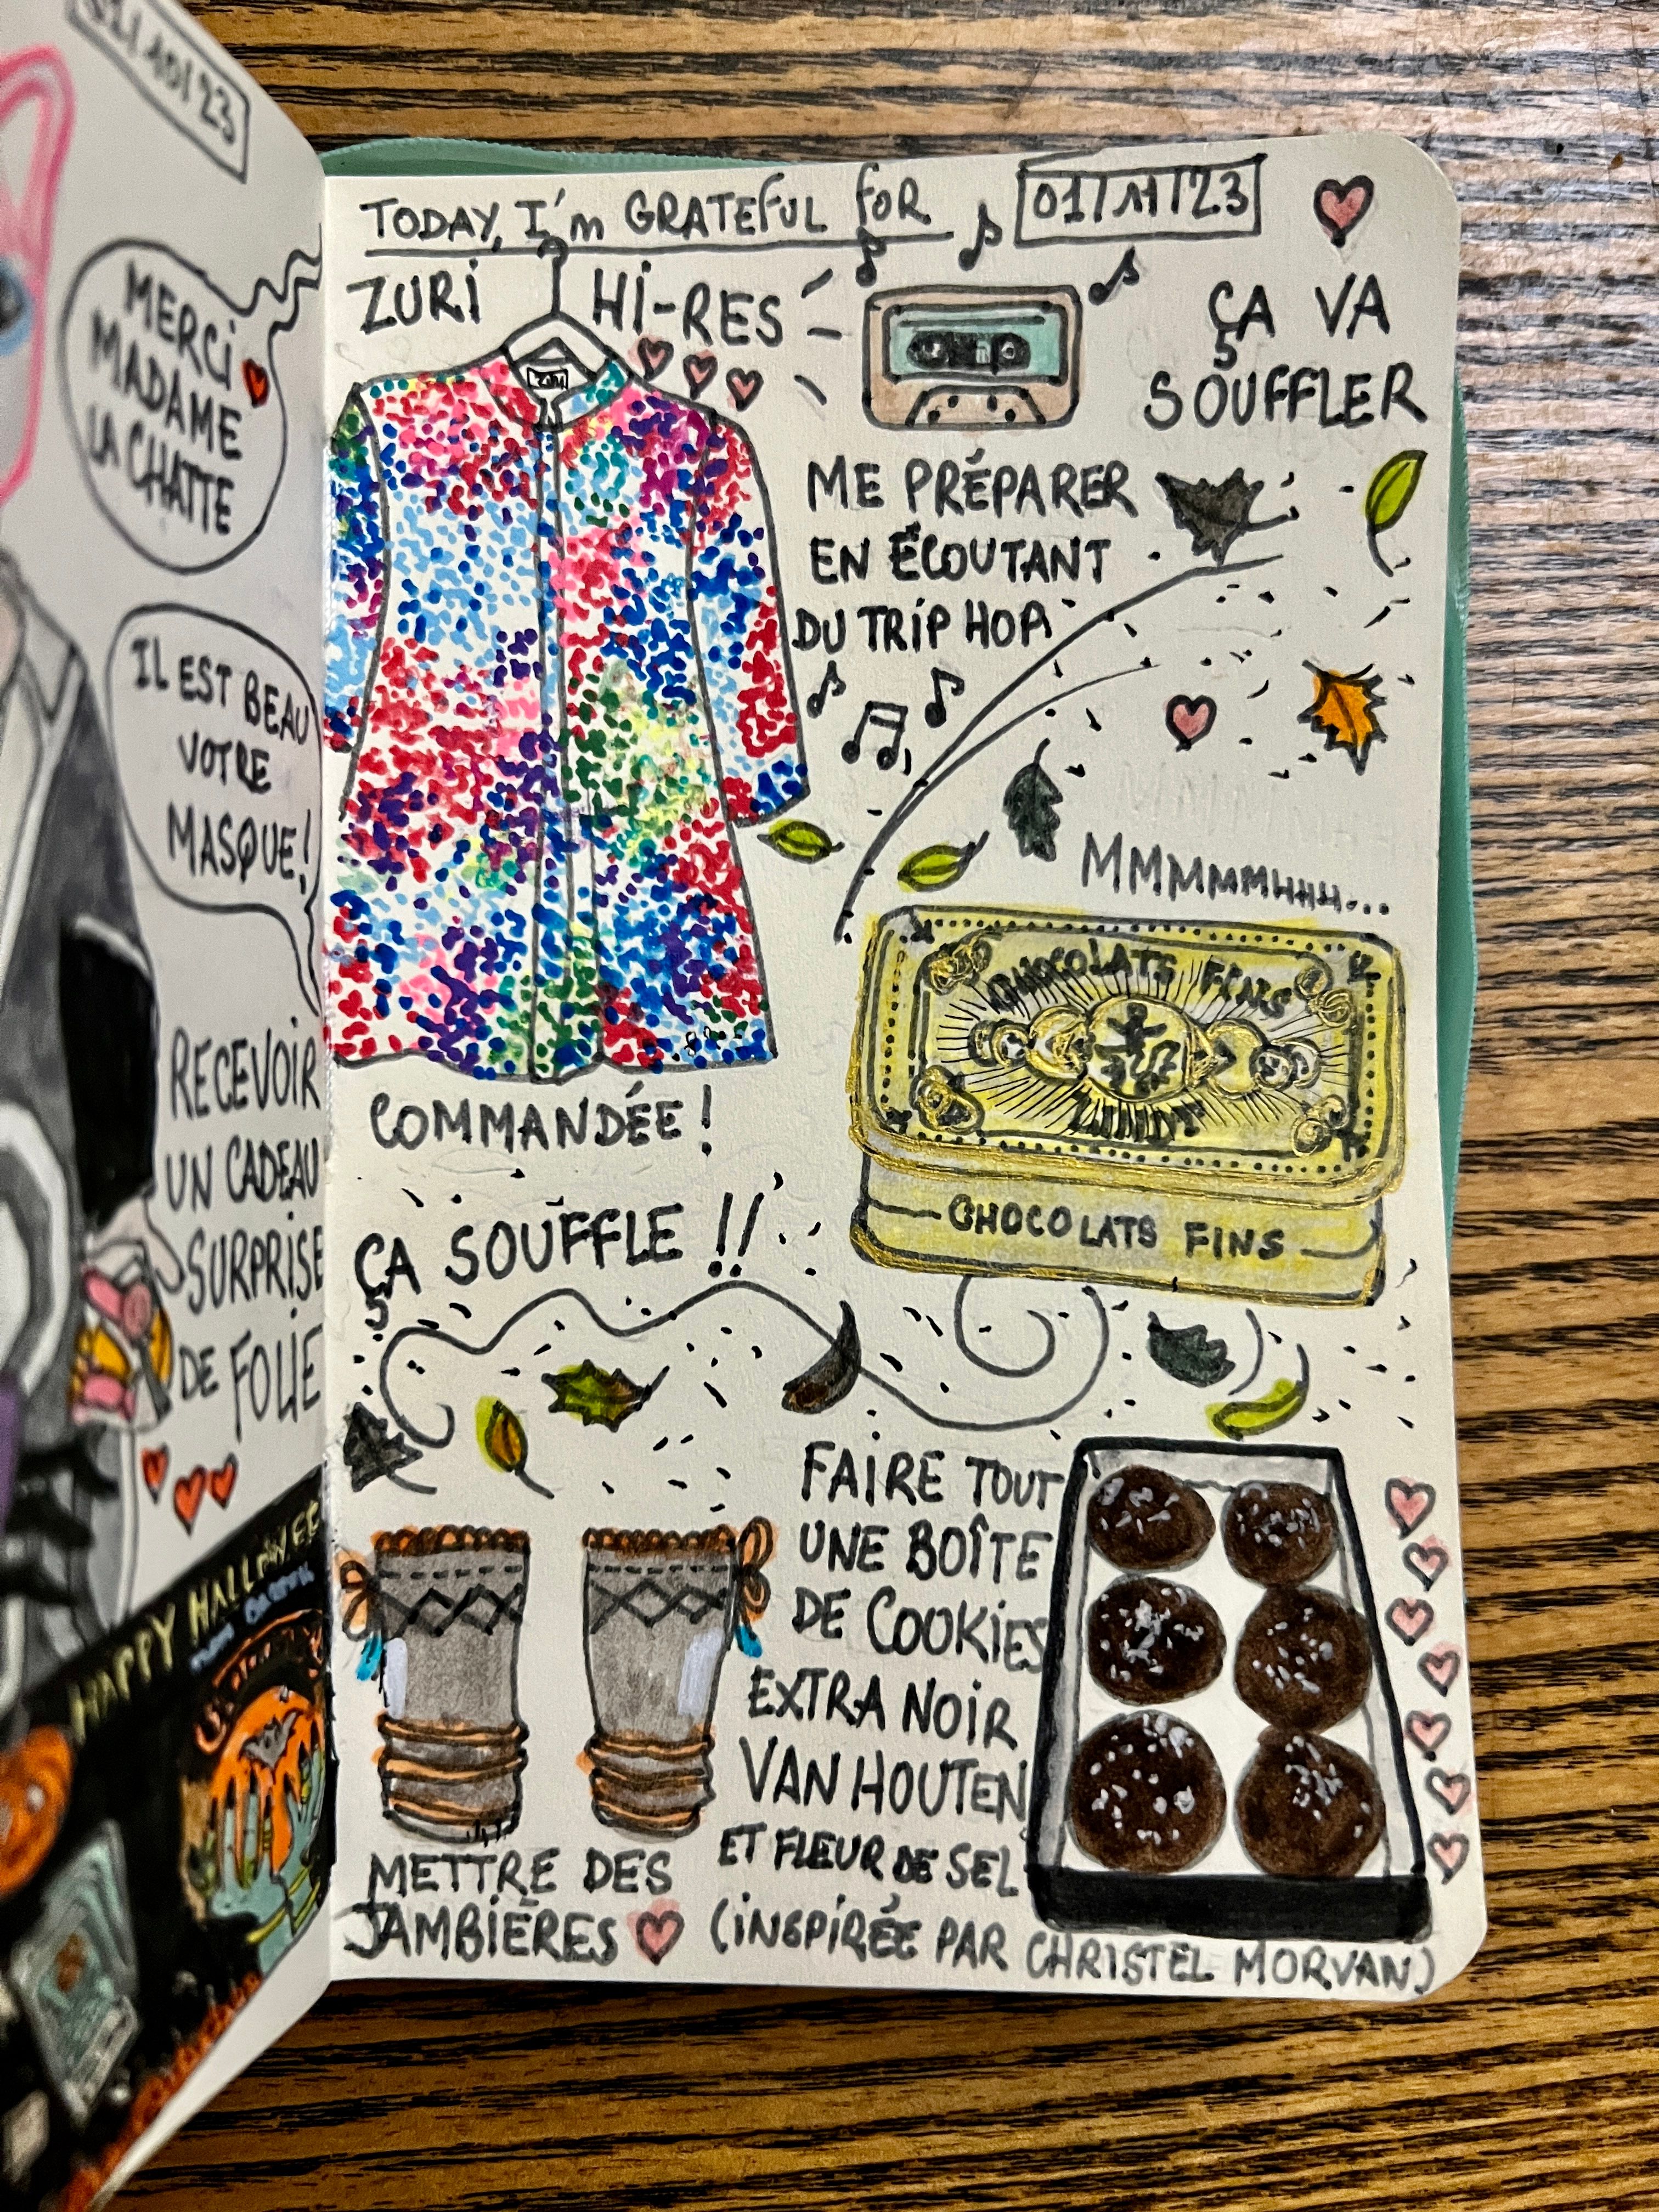 31/10/23
MERCI
MADAME
LA CHATTE
IL EST BEAU
VOTRE
MASQUE!
RECEVOIR
UN CADEAU
SURPRISE
DE FOLIE
HAPPY HALLOWEEN
TODAY, I'm GRATEFUL FOR 01/11/23
ZURI HI-RES
ZURI
COMMANDÉE!
ÇA VA
SOUFFLER
ME PRÉPARER
EN ÉCOUTANT
DU TRIP HOP
MMMMMMHHH...
CHOCOLATS FINS
CHOCOLATS FINS
ÇA SOUFFLE!!
METTRE DES
JAMBIÈRES
FAIRE TOUT
UNE BOÎTE
DE COOKIES
EXTRA NOIR
VAN HOUTEN
ET FLEUR DE SEL
(INSPIRÉE PAR CHRISTEL MORVAN)